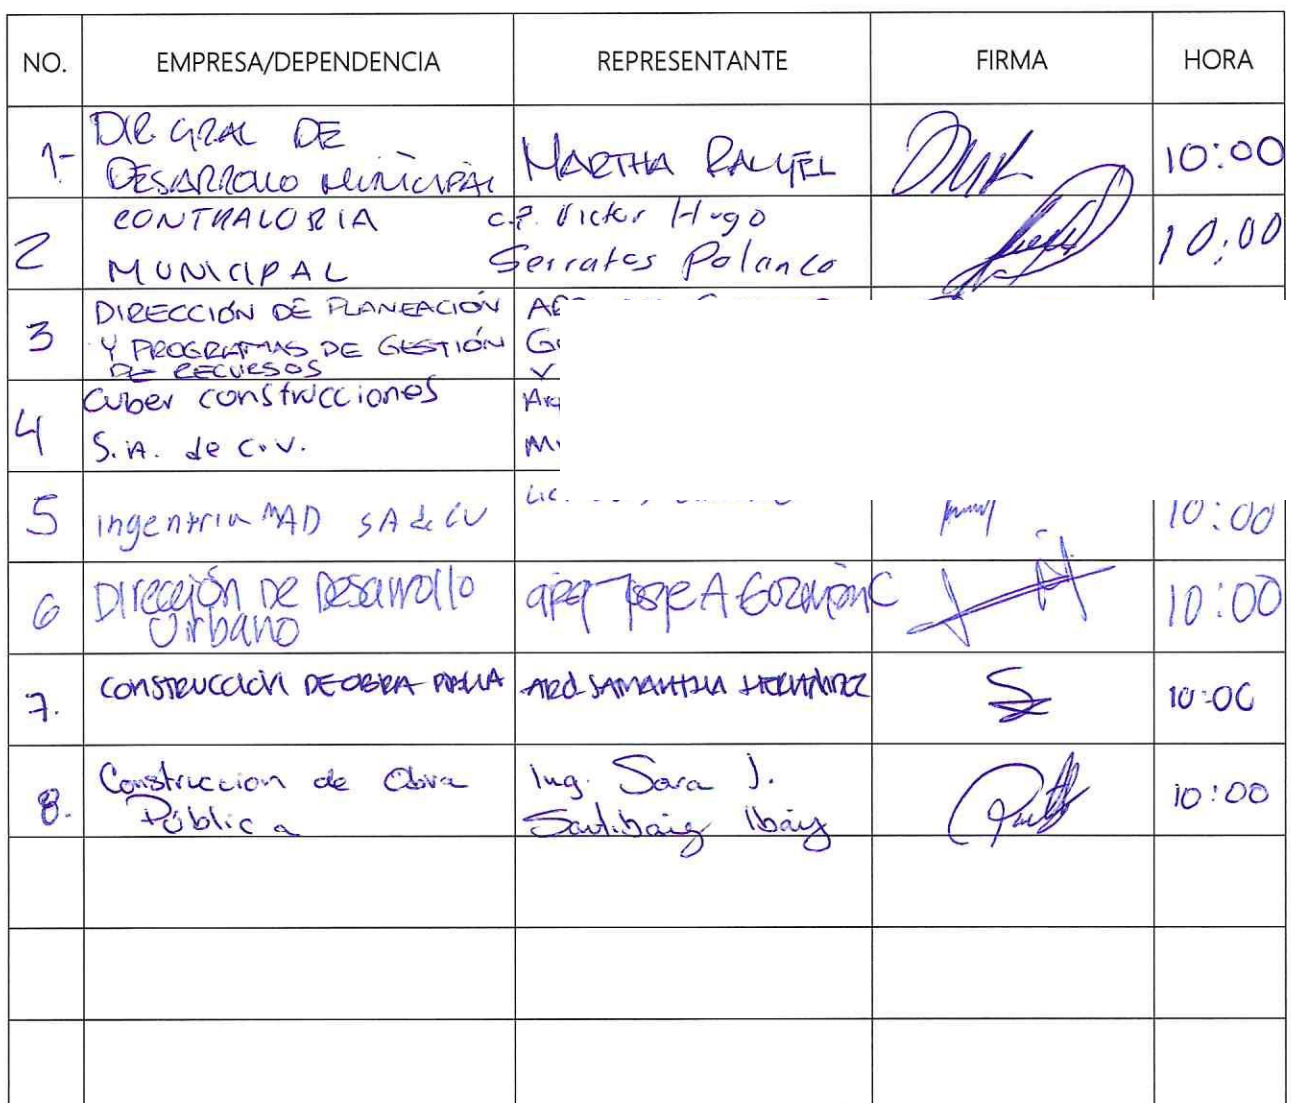 NO. EMPRESA/DEPENDENCIA REPRESENTANTE FIRMA HORA
1- DIR. GRAL DE
DESARROLLO MUNICIPAL MARTHA RANGEL 10:00
2 CONTRALORIA C.P. Victor Hugo
MUNICIPAL Serratos Polanco 10:00
3 DIRECCIÓN DE PLANEACIÓN
Y PROGRAMAS DE GESTIÓN
DE RECURSOS
4 Cuber construcciones
S.A. de C.V.
5 ingenieria MAD SA de CV 10:00
6 Dirección De Desarrollo
Urbano Jose A Guzmán C 10:00
7. CONSTRUCCIÓN DE OBRA ARQ SAMANTHA HERNÁNDEZ 10:00
8. Construccion de Obra Ing. Sara J.
Pública Ibáñ 10:00